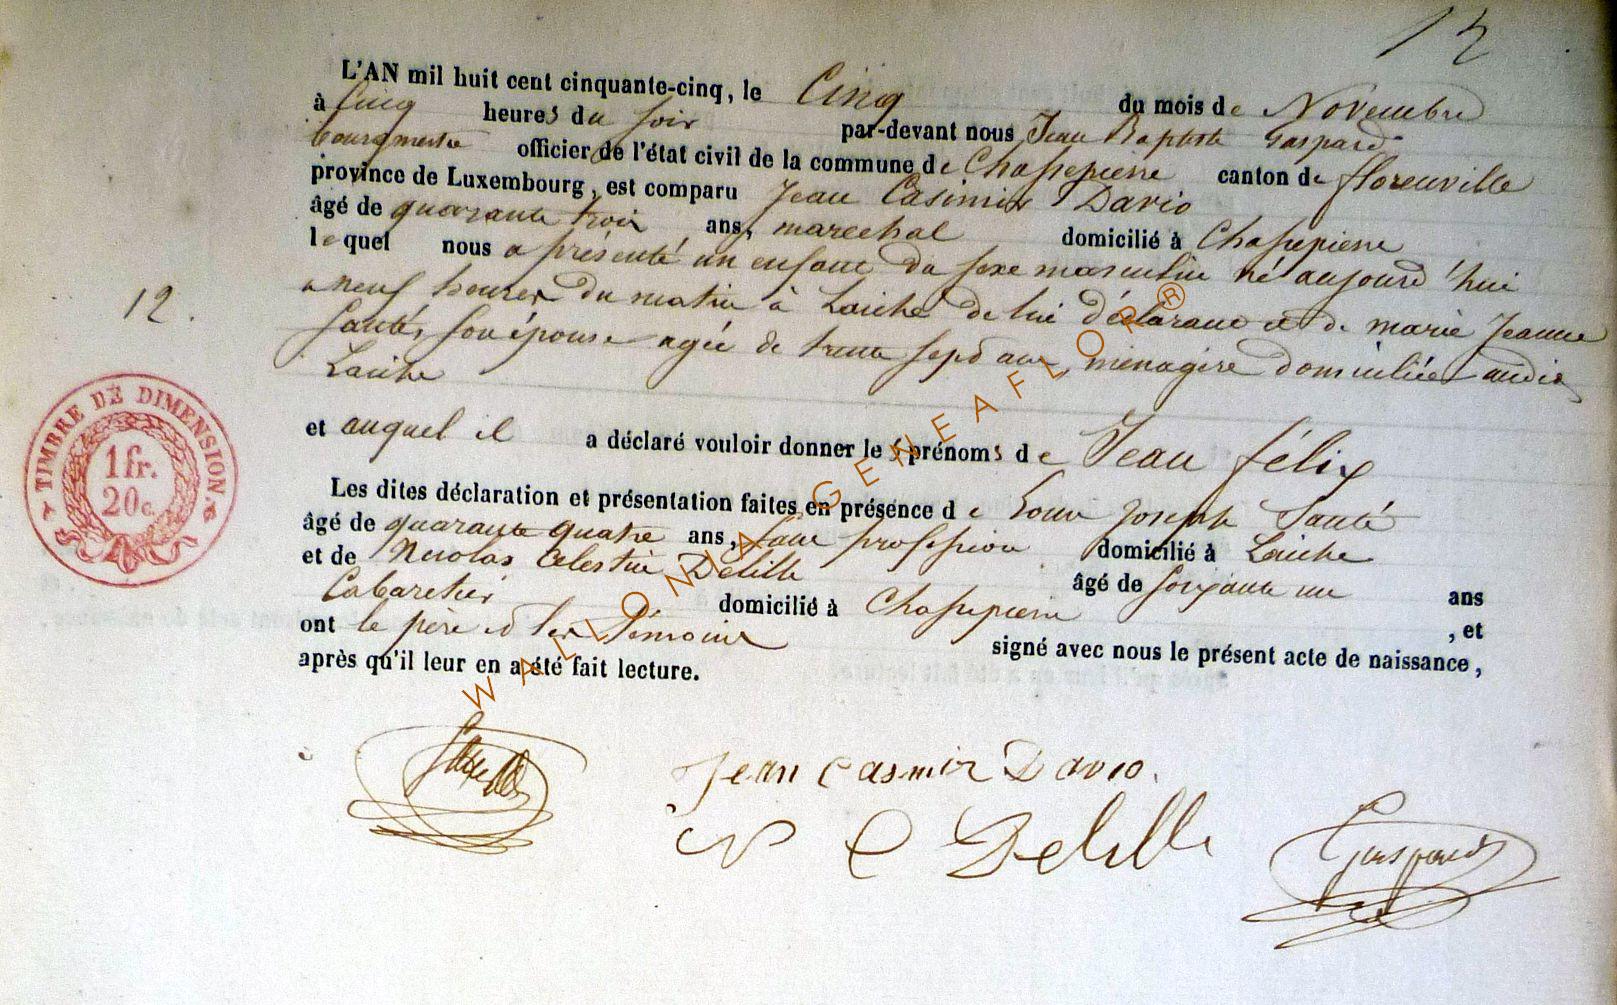 12
L'AN mil huit cent cinquante-cinq, le Cinq du mois de Novembre
à Cinq heures du soir par-devant nous Jean Baptiste Gaspard
bourgmestre officier de l'état civil de la commune de Chassepierre canton de florenville
province de Luxembourg, est comparu Jean Casimir Davio
âgé de quarante trois ans, marechal domicilié à Chassepierre
lequel nous a présenté un enfant du sexe masculin né aujourd'hui
a neuf heures du matin à Laiche de lui déclarant et de marie Jeanne
Santé, son épouse agée de trente sept ans ménagère domiciliée audit
Laiche
12.
et auquel il a déclaré vouloir donner les prénoms de Jean félix
Les dites déclaration et présentation faites en présence de Louis Joseph Santé
âgé de quarante quatre ans, sans profession domicilié à Laiche
et de Nicolas Celestin Delille âgé de soixante un ans
Cabaretier domicilié à Chassepierre , et
ont le père et les témoins signé avec nous le présent acte de naissance,
après qu'il leur en a été fait lecture.
TIMBRE DE DIMENSION.
1 fr.
20 c.
Jean Casmir Davio.
N C Delille
Gaspard
WALLONIA GENEAFLOR®